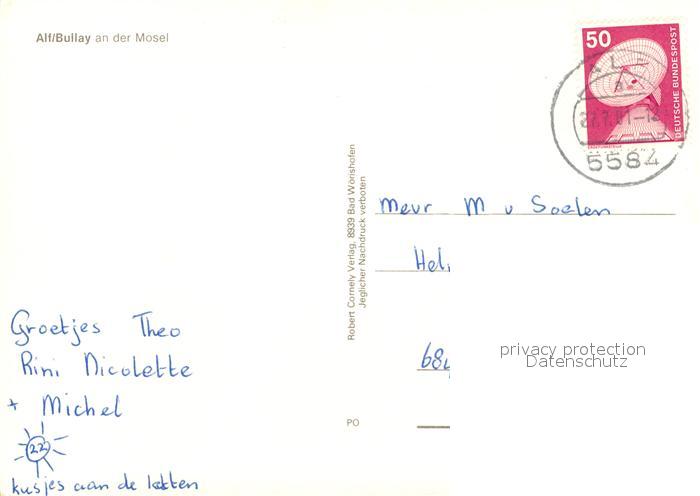 Alf/Bullay an der Mosel
50
DEUTSCHE BUNDESPOST
5584
Robert Cornely Verlag, 8939 Bad Wörishofen
Jeglicher Nachdruck verboten
Mevr M v Soelen
Hel
68
privacy protection
Datenschutz
Groetjes Theo
Rini Nicolette
+ Michel
22
kusjes aan de
PO